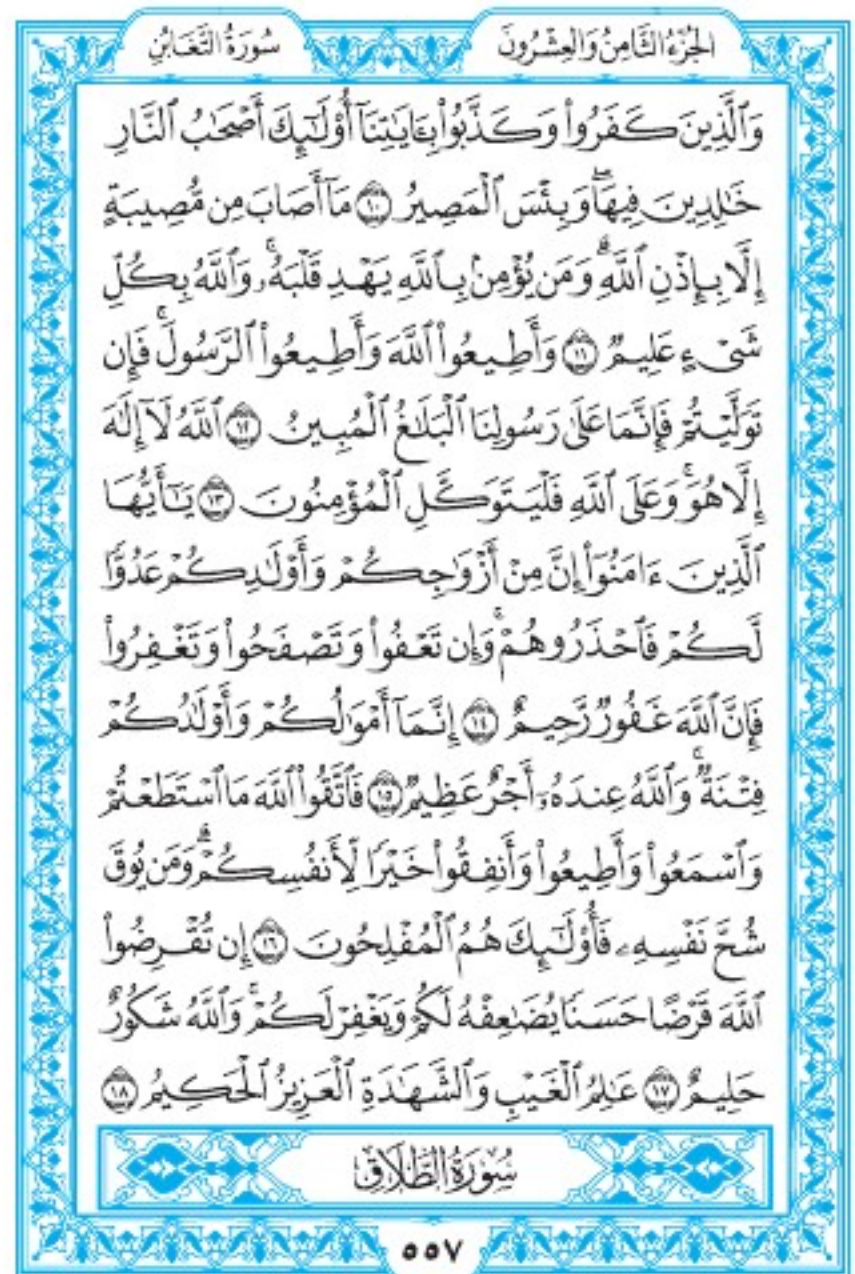 الجُزْءُ الثَّامِنُ وَالعِشْرُونَ
سُورَةُ التَّغَابُنِ
وَٱلَّذِينَ كَفَرُواْ وَكَذَّبُواْ بِـَٔايَٰتِنَآ أُوْلَٰٓئِكَ أَصْحَٰبُ ٱلنَّارِ
خَٰلِدِينَ فِيهَاۖ وَبِئْسَ ٱلْمَصِيرُ ١٠ مَآ أَصَابَ مِن مُّصِيبَةٍ
إِلَّا بِإِذْنِ ٱللَّهِۗ وَمَن يُؤْمِنۢ بِٱللَّهِ يَهْدِ قَلْبَهُۥۚ وَٱللَّهُ بِكُلِّ
شَىْءٍ عَلِيمٌ ١١ وَأَطِيعُواْ ٱللَّهَ وَأَطِيعُواْ ٱلرَّسُولَۚ فَإِن
تَوَلَّيْتُمْ فَإِنَّمَا عَلَىٰ رَسُولِنَا ٱلْبَلَٰغُ ٱلْمُبِينُ ١٢ ٱللَّهُ لَآ إِلَٰهَ
إِلَّا هُوَۚ وَعَلَى ٱللَّهِ فَلْيَتَوَكَّلِ ٱلْمُؤْمِنُونَ ١٣ يَٰٓأَيُّهَا
ٱلَّذِينَ ءَامَنُوٓاْ إِنَّ مِنْ أَزْوَٰجِكُمْ وَأَوْلَٰدِكُمْ عَدُوًّا
لَّكُمْ فَٱحْذَرُوهُمْۚ وَإِن تَعْفُواْ وَتَصْفَحُواْ وَتَغْفِرُواْ
فَإِنَّ ٱللَّهَ غَفُورٌ رَّحِيمٌ ١٤ إِنَّمَآ أَمْوَٰلُكُمْ وَأَوْلَٰدُكُمْ
فِتْنَةٌۚ وَٱللَّهُ عِندَهُۥٓ أَجْرٌ عَظِيمٌ ١٥ فَٱتَّقُواْ ٱللَّهَ مَا ٱسْتَطَعْتُمْ
وَٱسْمَعُواْ وَأَطِيعُواْ وَأَنفِقُواْ خَيْرًا لِّأَنفُسِكُمْۗ وَمَن يُوقَ
شُحَّ نَفْسِهِۦ فَأُوْلَٰٓئِكَ هُمُ ٱلْمُفْلِحُونَ ١٦ إِن تُقْرِضُواْ
ٱللَّهَ قَرْضًا حَسَنًا يُضَٰعِفْهُ لَكُمْ وَيَغْفِرْ لَكُمْۚ وَٱللَّهُ شَكُورٌ
حَلِيمٌ ١٧ عَٰلِمُ ٱلْغَيْبِ وَٱلشَّهَٰدَةِ ٱلْعَزِيزُ ٱلْحَكِيمُ ١٨
سُورَةُ الطَّلَاقِ
٥٥٧